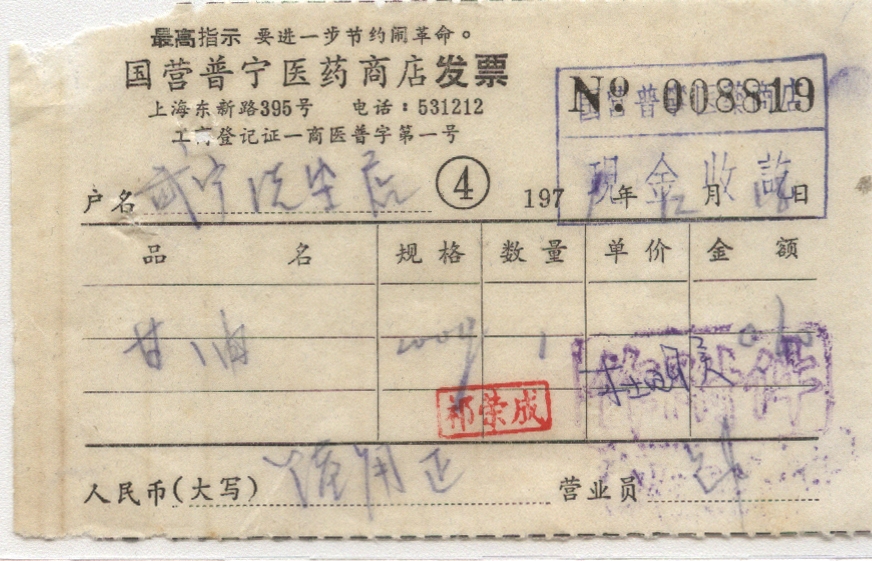 最高指示 要进一步节约闹革命。
国营普宁医药商店发票
上海东新路395号 电话：531212
工商登记证一商医普字第一号
№ 008819
国营普宁医药商店
现金收讫
户名 武宁洗染店 ④ 197 年12月18日
品名 规格 数量 单价 金额
甘油 1
祁荣成
人民币(大写) 陆角正 营业员